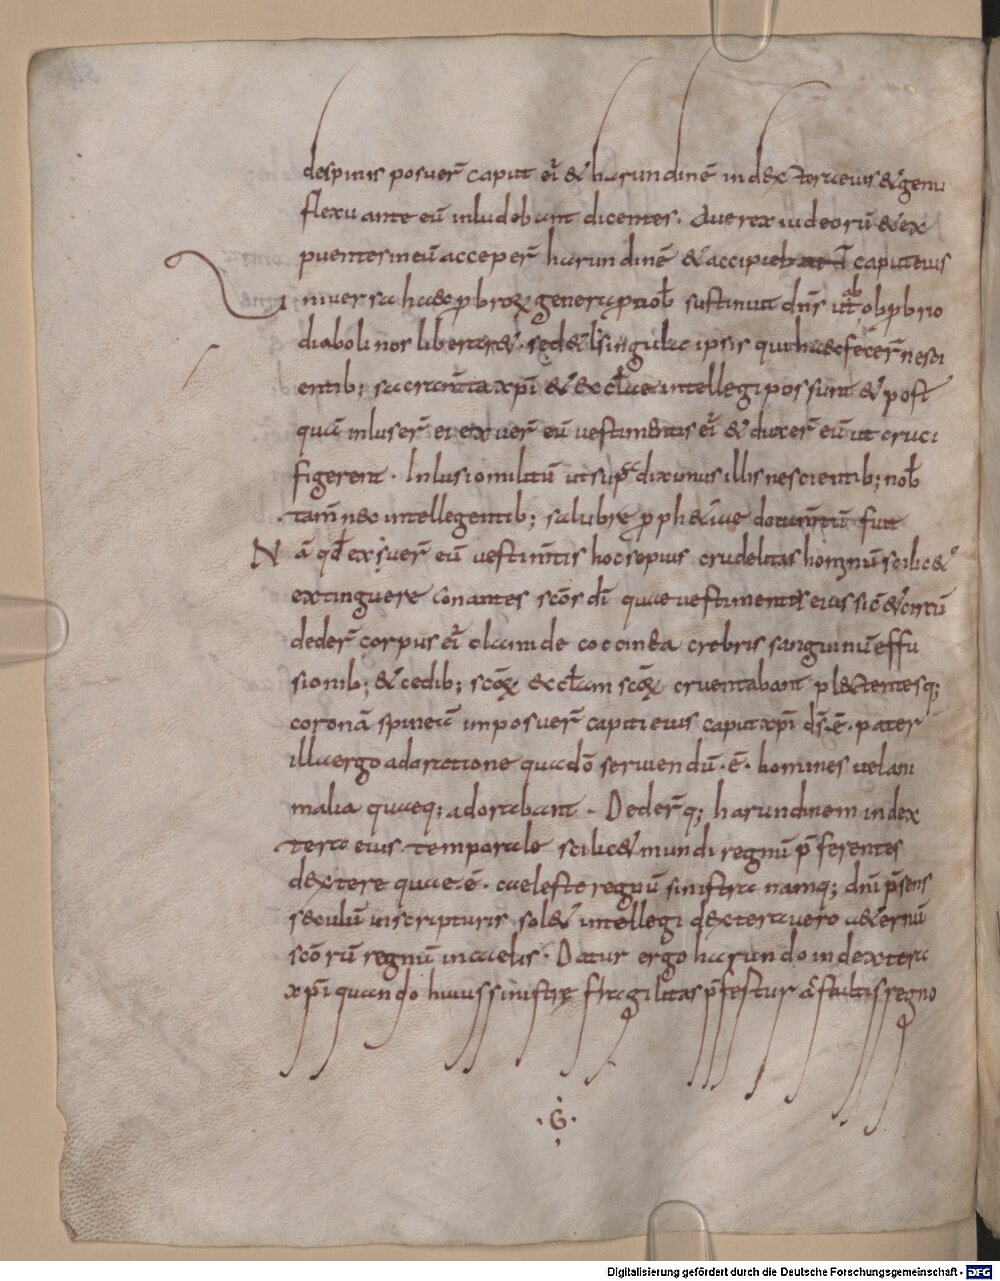 despinis posuer̄ caput ei' & harundinē indexteraeius &genu
flexu ante eū inludebant dicentes. Auerex iudeorū &ex
puentesineū acceper̄ harundinē &accipieb caputeius
Uniuersa haec ꝓbroꝝ genera ꝓnob̄ sustinuit dn̄s ut ab obꝓbrio
diaboli nos liberar& . sed& singula ipsis quihaecfecer̄ nesci
entib; sacram̄ta xp̄i & eccl̄iae intellegi possunt & post
quā inluser̄ ei exuer̄ eū uestimentis ei' & duxer̄ eū ut cruci
figerent . Inlusiomilitū utsup̄ diximus illis nescientib; nob̄
tam̄ nec intellegentib; salubrę ꝓph&iae docum̄tū fuit
Nā qd̄ exuer̄ eū uestim̄tis hocsepius crudelitas hominū scilic&
extinguere conantes scōs dī quaeuestimentis eius sic̄ &circū
deder̄ corpus ei' clamide coccinea crebris sanguinū effu
sionib; &cedib; scōꝝ eccl̄iam scōꝝ cruentabant pl&entesq;
coronā spineā imposuer̄ capitieius caputxp̄i ds̄.ē. pater
illaergo adoratione quadō seruiendū.ē. homines uelani
malia quaeq; adorabant . Deder̄q; harundinem index
tera eius temporale scilic& mundi regnū p̄ferentes
dextere quae.ē. caeleste regnū sinistra namq; dn̄i p̄sens
seculū inscripturis sol& intellegi dexterauero &ernū
scōrū regnū incaelis . Datur ergo harundo indextera
xp̄i quando huiussinistrę fragilitas p̄fertur a stultis regno
.G.
Digitalisierung gefördert durch die Deutsche Forschungsgemeinschaft - DFG